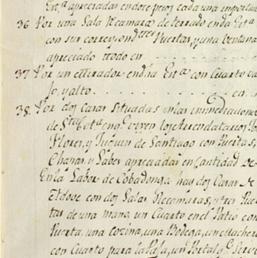 apreciadas en doce pesos cada una importa
36 Por una Sala Recamara de terrado en la Est.ª
con sus correspond.tes Puertas, y una Ventana
apreciado todo en
37 Por un Mirador en dha Est.ª con cuarto ba
jo y alto
38 Por dos Casas Situadas en las inmediaciones
de Sta. Est.ª en q.e viven los Arrendatarios
Flores, y Joaquin de Santiago con Puertas,
Chapas y Llaves apreciadas en Cantidad de
En la Labor de Cobadonga hay dos Casas de
con dos Salas Recamaras, y tres Puer
tas de una mano un Cuarto en el Patio con
Puerta, una cocina, una Bodega, un
con Cuarto para la Paja, un Portal q.e Serv